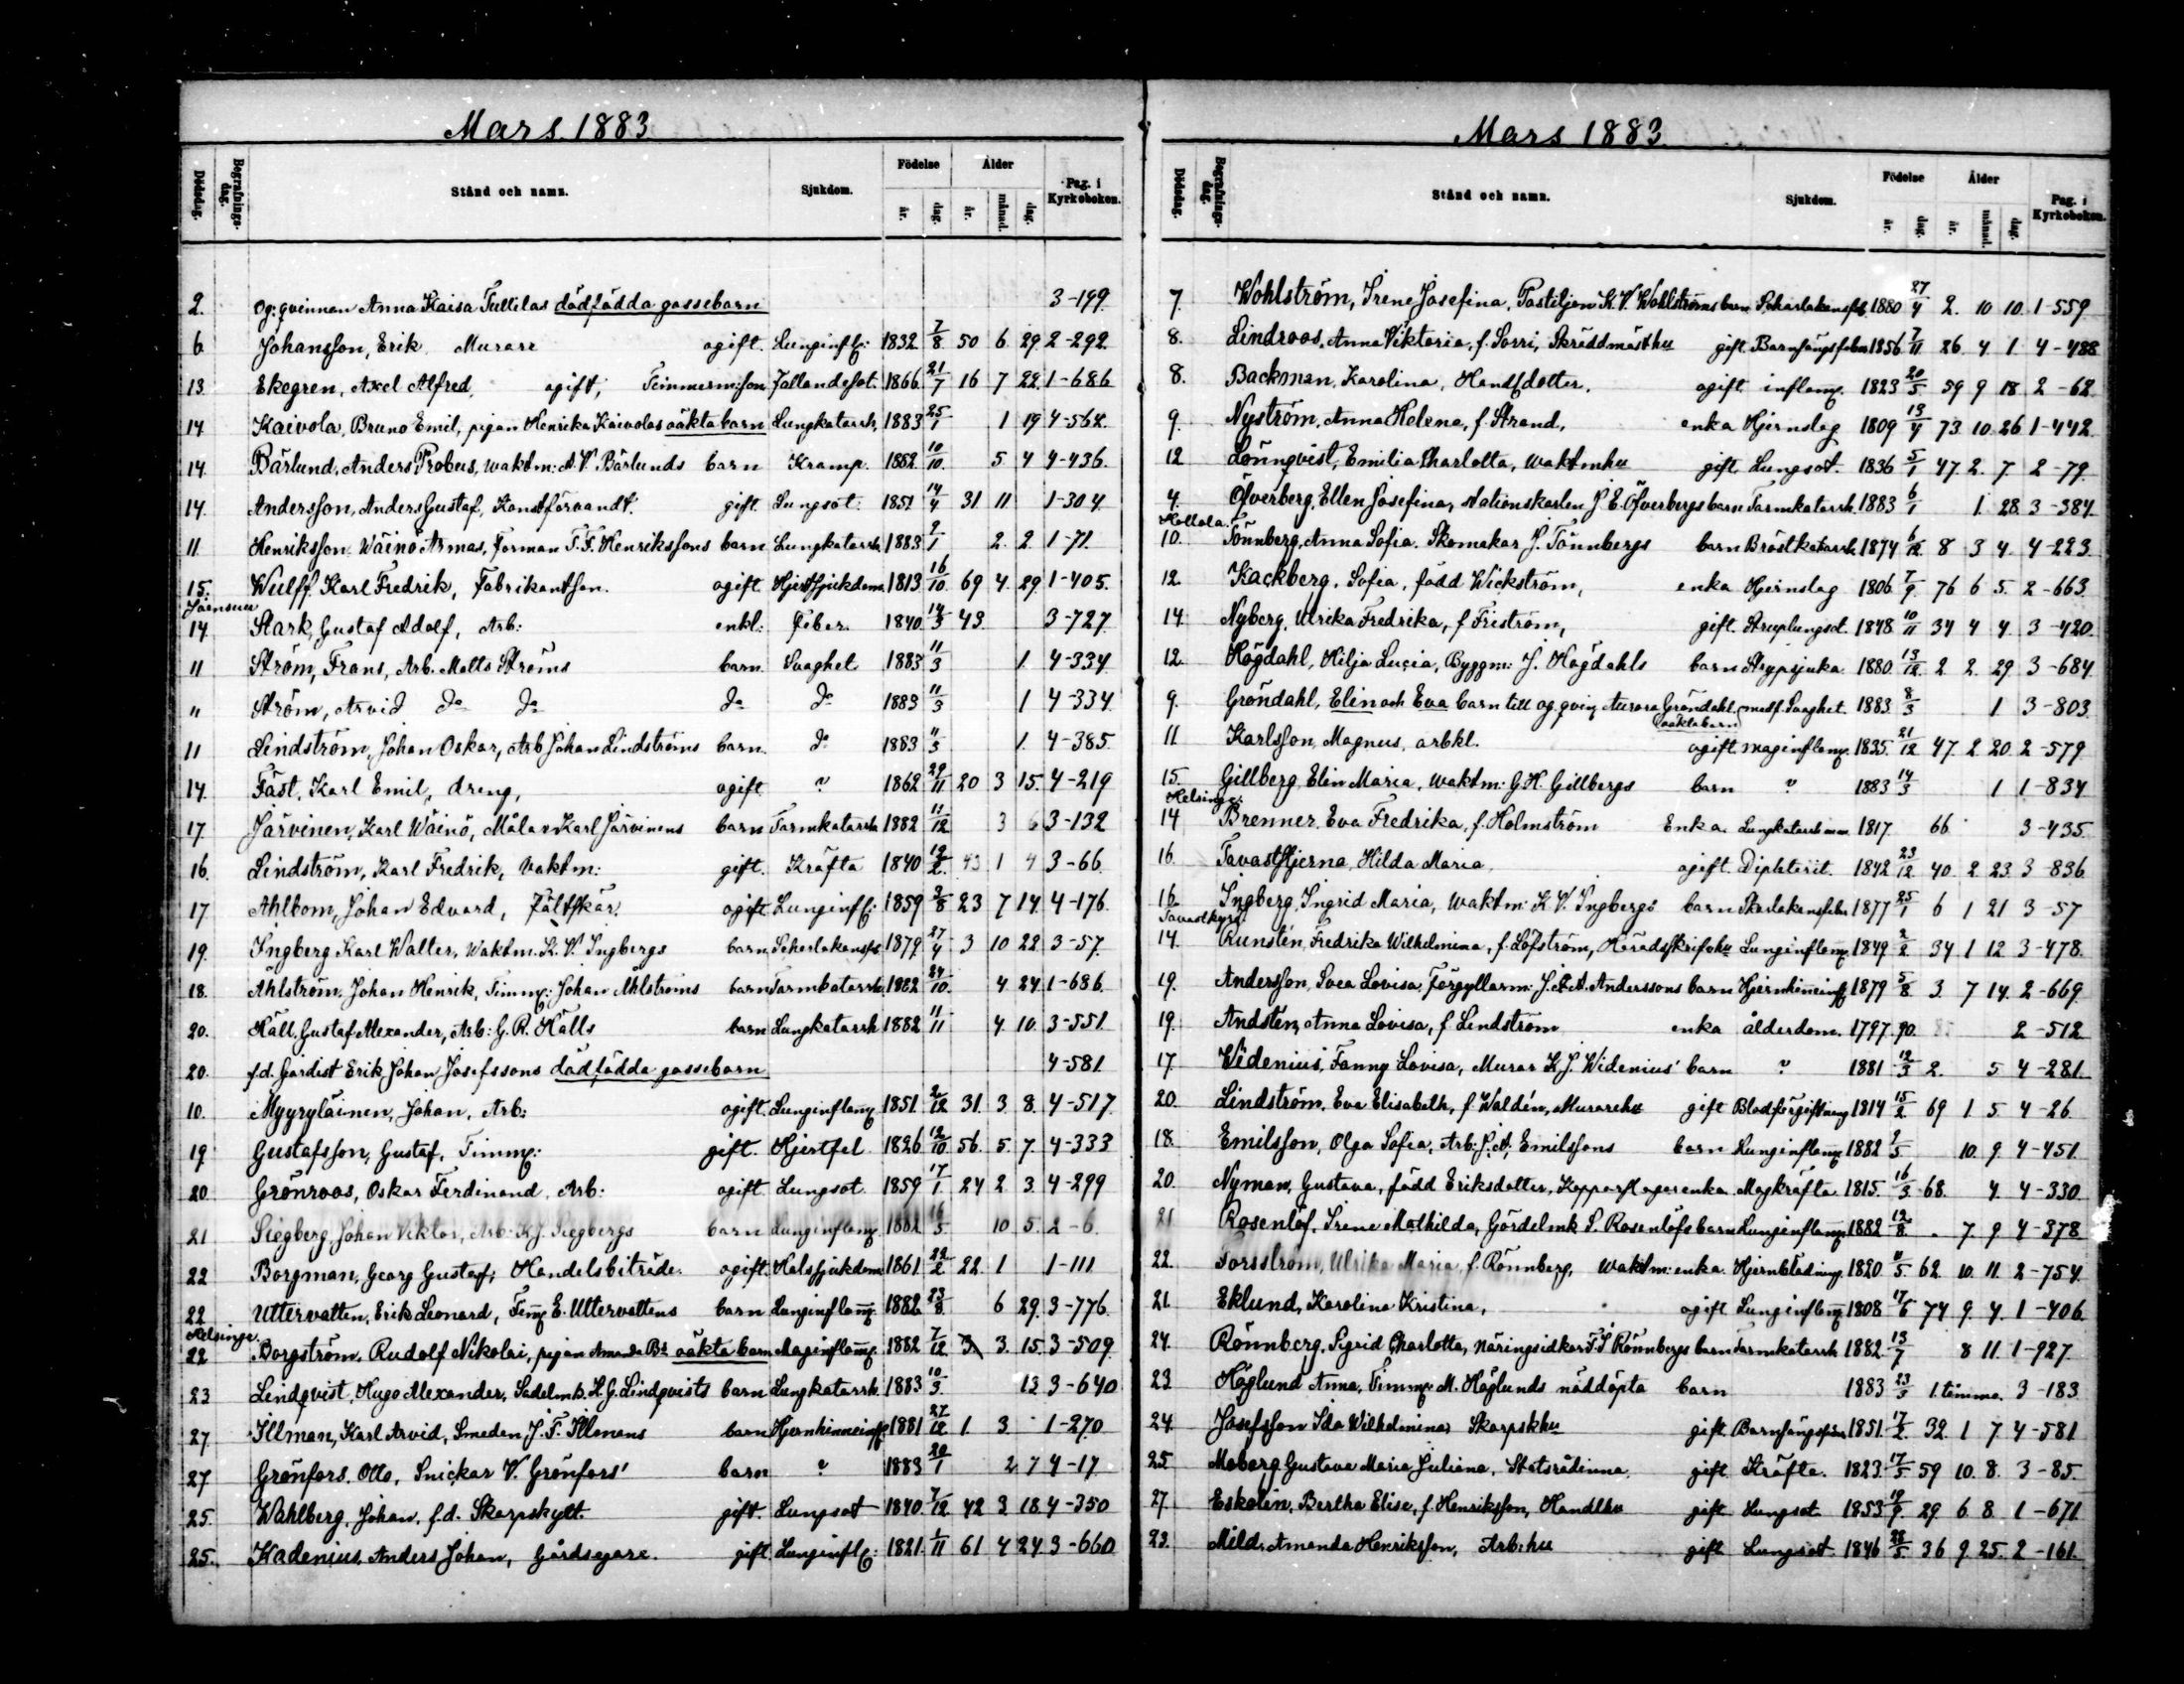 Mars 1883
Dödsdag. Begrafnings-dag. Stånd och namn. Sjukdom. Födelse år. dag. Ålder år. månad. dag. Pag. i Kyrkoboken.
2. Og: qvinnan Anna Kaisa Tuttilas dödfödda gossebarn 3-199.
6 Johansson, Erik Murare ogift. Lunginfl: 1832 7/8 50 6 29 2-292
13. Ekegren, Axel Alfred, ogift, Timmerm:son Fallandesot. 1866 21/7 16 7 22 1-686
14 Kaivola, Bruno Emil, pigan Henrika Kaivolas oäkta barn Lungkatarrh. 1883 25/1 1 19 4-564.
14. Bärlund, Anders Probus, waktm: A. V. Bärlunds barn Kramp. 1882 10/10. 5 4 4-436.
14. Andersson, Anders Gustaf, Konstförvandt. gift. Lungsot. 1851 14/4 31 11 1-304
11 Henriksson Wäinö Armas, Forman F. F. Henrikssons barn Lungkatarrh 1883 9/1 2. 2. 1-71.
15. Wulff Karl Fredrik, Fabrikantson. ogift Hjertsjukdom 1813 16/10 69 4. 29. 1-405.
Joensuu
14. Stark, Gustaf Adolf, Arb: enkl: Feber 1840 14/3 43. 3-727.
11 Ström, Frans, Arb. Matts Ströms barn. Svaghet 1883 11/3 1. 4-334
" Ström, Arvid do do do do 1883 11/3 1 4-334.
11 Lindström, Johan Oskar, Arb Johan Lindströms barn. do 1883 11/3 1. 4-385.
14. Fäst, Karl Emil, dreng, ogift ? 1862 29/11 20 3 15. 4-219
17 Järvinen, Karl Wäinö, Målar Karl Järvinens barn Tarmkatarrh 1882 11/12 3 6 3-132
16. Lindström, Karl Fredrik, Vaktm: gift. Kräfta 1840 12/2. 43 1 4 3-66
17 Ahlbom, Johan Edvard, Fältskär. ogift Lunginfl: 1859 3/8 23 7 14. 4-176.
19. Ingberg Karl Walter, Waktm. K. V. Ingbergs barn Scharlakansfeb 1879 27/4 3 10 22 3-57.
18. Åhlström, Johan Henrik, Timmr: Johan Åhlströms barn Tarmkatarrh. 1882 24/10. 4 24. 1-686.
20. Häll, Gustaf Alexander, Arb: G. R. Hälls barn Lungkatarrh 1882 11/11 4. 10. 3-551.
20. f.d. Gardist Erik Johan Josefssons dödfödda gossebarn 4-581
10. Myyryläinen, Johan, Arb: ogift. Lunginflam. 1851. 2/12 31. 3. 8. 4-517
19. Gustafsson, Gustaf, Timmr: gift. Hjertfel 1826 12/10 56. 5. 7. 4-333
20. Grönroos, Oskar Ferdinand, Arb: ogift Lungsot. 1859 17/1 24 2 3. 4-299
21 Siegberg, Johan Viktor, Arb: K J. Siegbergs barn Lunginflam. 1882 16/5 10 5. 2-6.
22 Borgman, Georg Gustaf, Handelsbiträde. ogift. Halssjukdom 1861 22/2 22. 1 1-111
22 Uttervatten, Erik Leonard, Timr E. Uttervattens barn Lunginflam. 1882 23/8. 6 29. 3-776.
Helsinge.
22 Borgström, Rudolf Nikolai, pigan Amanda Bs oäkta barn Maginflam. 1882 7/12 3 3. 15. 3-509.
23 Lindqvist, Hugo Alexander, Sadelmk. K. G. Lindqvists barn Lungkatarrh. 1883 10/3. 13 3-640
27 Illman, Karl Arvid, Smeden J. F. Illmans barn Hjernhinneinfl 1881 27/12 1. 3. 1-270.
27 Grönfors, Otto, Snickar V. Grönfors' barn ? 1883 20/1 2 7 4-17.
25. Wahlberg, Johan, f.d. Skarpskytt. gift. Lungsot 1840. 7/12 42 3 18. 4-350
25. Kadenius Anders Johan, Gårdsegare. gift Lunginfl: 1821. 1/11 61 4 24 3-660
Mars 1883
Dödsdag. Begrafnings-dag. Stånd och namn. Sjukdom. Födelse år. dag. Ålder år. månad. dag. Pag. i Kyrkoboken.
7. Wohlström, Irene Josefina, Postiljon K. V. Wohlströms barn Scharlakansfeb. 1880 27/4 2. 10 10. 1-559
8. Lindroos, Anna Viktoria, f. Sorri, Skräddmästhu gift. Barnsängsfeber 1856 7/11 26 4 1 4-488
8. Backman, Karolina, Handldotter, ogift inflam. 1823 20/5 59 9 18 2-62
9. Nyström, Anna Helena, f. Strand, enka Hjernslag 1809 13/4 73 10. 26 1-442
12 Lönnqvist, Emilia Charlotta, Waktmhu gift. Lungsot. 1836 5/1 47. 2. 7. 2-79.
4. Öfverberg, Ellen Josefina, Stationskarlen J E. Öfverbergs barn Tarmkatarrh. 1883 6/1 1. 28. 3-384.
Hollola.
10. Tönnberg, Anna Sofia. Skomakar J. Tönnbergs barn Bröstkatarrh 1874 6/12 8 3 4. 4-223.
12. Kackberg, Sofia, född Wickström, enka Hjernslag 1806 7/9. 76 6 5. 2-663.
14 Nyberg, Ulrika Fredrika, f Friström, gift. Struplungsot. 1848 10/11 34 4 4. 3-420.
12 Högdahl, Hilja Lucia, Byggm: J. Högdahls barn Strypsjuka 1880 13/12 2 2. 29. 3-684
9. Gröndahl, Elin och Eva barn till og. qvin Aurora Gröndahl (oäkta barn) medf. Svaghet. 1883 8/3 1 3-803.
11 Karlsson, Magnus, arbkl. ogift maginflam. 1835. 21/12 47. 2 20. 2-579
15. Gillberg, Elin Maria, Waktm: G. H. Gillbergs barn ? 1883 14/3 1 1-834
Helsinge:
14 Brenner, Eva Fredrika, f. Holmström Enka. 1817 66 3-435.
16. Tavaststjerna, Hilda Maria ogift. Diphterit. 1842 23/12 40. 2. 23. 3-836
16. Ingberg, Ingrid Maria, Waktm: K V. Ingbergs barn Skarlakansfeber 1877 25/1 6 1 21 3-57
Tavastkyrö.
14. Runstén, Fredrika Wilhelmina, f. Löfström, Häradsskrifvhu Lunginflam. 1849 2/2 34 1 12 3-478.
19. Andersson, Svea Lovisa, Förgyllarm: J. E. A. Anderssons barn Hjernhinneinfl 1879 5/8. 3. 7 14. 2-669.
19. Andstén, Anna Lovisa, f Lindström enka ålderdom. 1797. 90. 2-512
17. Widenius, Fanny Lovisa, Murar K J. Widenius' barn ? 1881 12/3 2. 5 4-281.
20. Lindström, Eva Elisabeth, f Waldén, Murarehu gift Blodförgiftning 1814 15/2 69 1. 5 4-26.
18. Emilsson, Olga Sofia, Arb: J. A. Emilssons barn Lunginflam. 1882 9/5 10. 9. 4-451.
20. Nyman, Gustava, född Eriksdotter, Kopparslagarenka. Magkräfta. 1815. 16/3 68. 4. 4-330
21 Rosenlöf, Irene Mathilda, Gördelmk S. Rosenlöfs barn Lunginflam. 1882 12/8. 7. 9 4-378
22. Forsström, Ulrika Maria, f. Rönnberg, Waktm: enka. Hjernblödning. 1820 11/5. 62. 10. 11. 2-754.
21. Eklund, Karolina Kristina, ogift Lunginflam. 1808 17/6 74 9. 4. 1-406
24. Rönnberg, Sigrid Charlotta, Näringsidkar F. S Rönnbergs barn Tarmkatarrh 1882. 13/7 8 11. 1-927.
23 Höglund Anna, Timmr M. Höglunds nöddöpta barn 1883 23/3 1. timma. 3-183
24. Josefsson Ida Wilhelmina, Skarpskhu gift. Barnsängsfeber 1851. 17/2. 32. 1 7 4-581
25 Moberg Gustava Maria Juliana, Statsrådinna. gift Kräfta. 1823. 17/5 59 10. 8. 3-85.
27 Eskolin, Bertha Elise, f. Henriksson, Handlhu gift Lungsot 1853 19/9. 29. 6 8. 1-671
23. Mild, Amanda Henriksson, Arb:hu gift Lungsot 1846 28/5. 36 9. 25. 2-161.